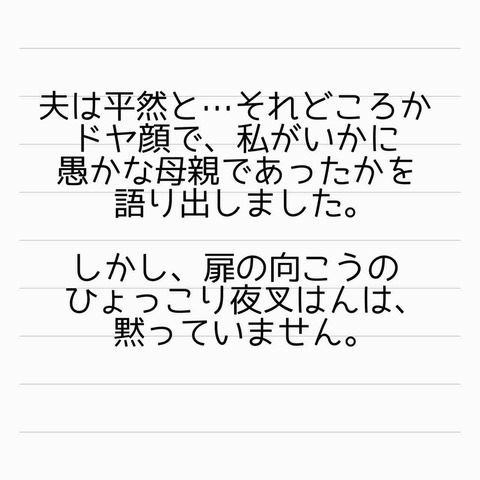 夫は平然と…それどころか
ドヤ顔で、私がいかに
愚かな母親であったかを
語り出しました。
しかし、扉の向こうの
ひょっこり夜叉はんは、
黙っていません。